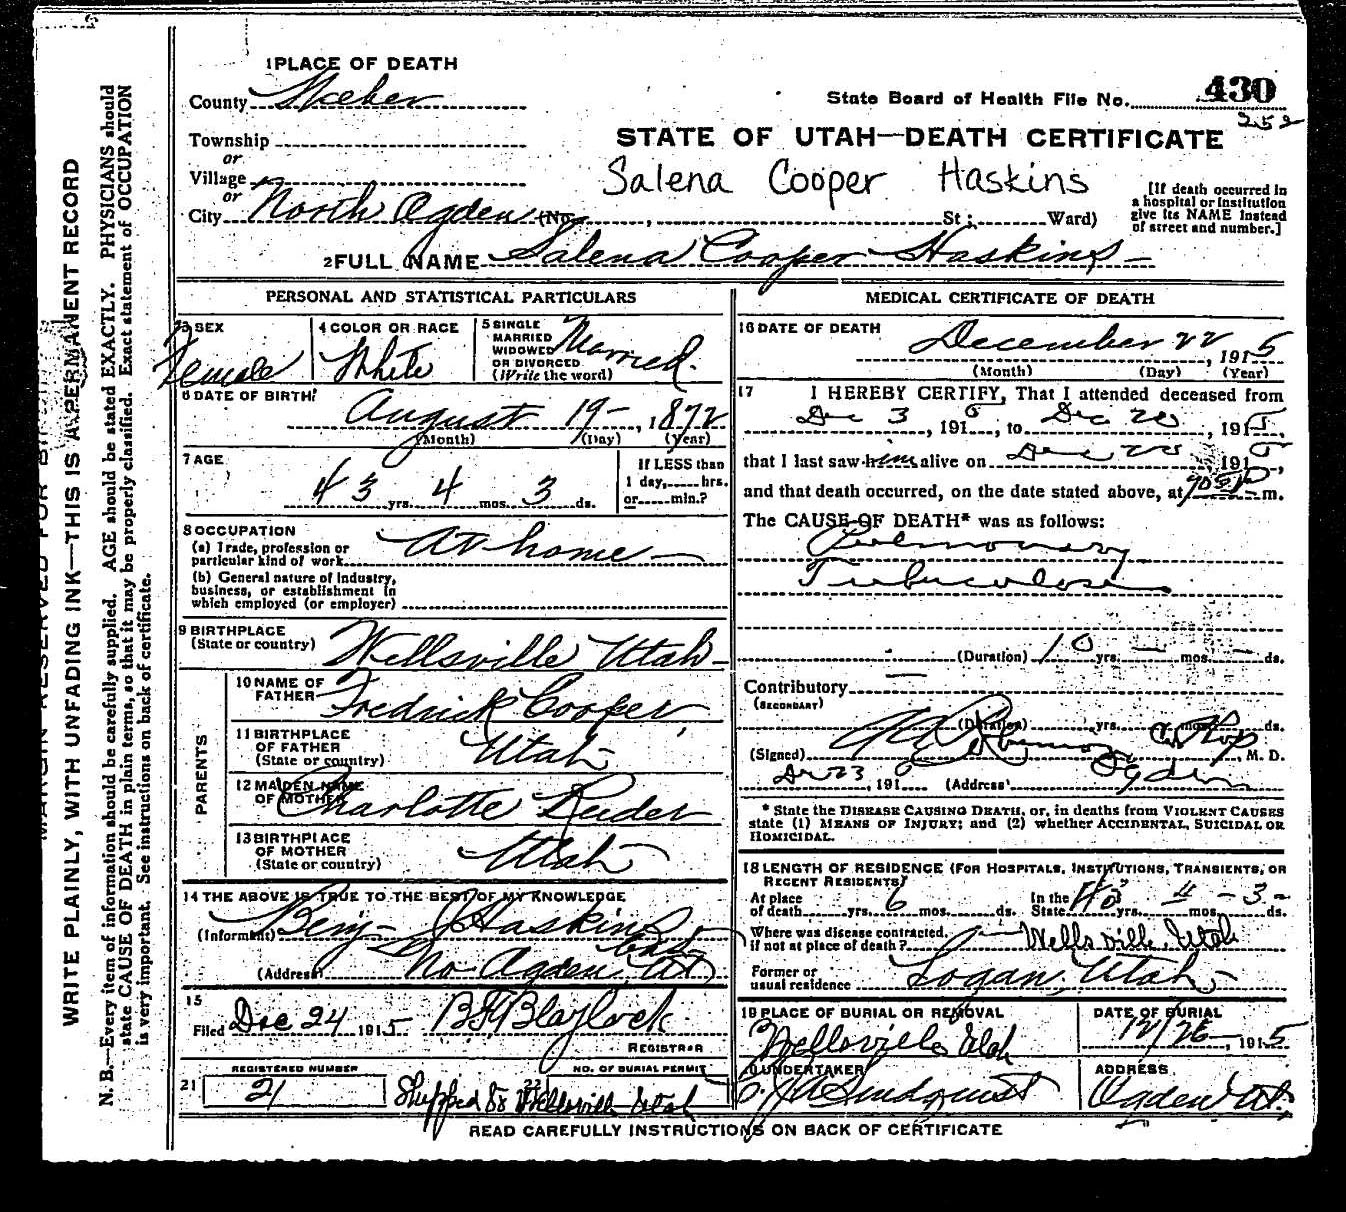 1 PLACE OF DEATH
County Weber
State Board of Health File No. 430
252
Township
or
Village
or
City North Ogden (No. , St ; Ward)
STATE OF UTAH—DEATH CERTIFICATE
Salena Cooper Haskins
[If death occurred in
a hospital or institution
give its NAME instead
of street and number.]
2 FULL NAME Salena Cooper Haskins
PERSONAL AND STATISTICAL PARTICULARS
3 SEX
Female
4 COLOR OR RACE
White
5 SINGLE
MARRIED
WIDOWED
OR DIVORCED
(Write the word)
Married.
6 DATE OF BIRTH
August 19 , 1872
(Month) (Day) (Year)
7 AGE
43 yrs. 4 mos. 3 ds.
If LESS than
1 day, hrs.
or min.?
8 OCCUPATION
(a) Trade, profession or
particular kind of work At home
(b) General nature of Industry,
business, or establishment in
which employed (or employer)
9 BIRTHPLACE
(State or country) Wellsville Utah
PARENTS
10 NAME OF
FATHER Fredrick Cooper
11 BIRTHPLACE
OF FATHER
(State or country) Utah
12 MAIDEN NAME
OF MOTHER Charlotte
13 BIRTHPLACE
OF MOTHER
(State or country) Utah
14 THE ABOVE IS TRUE TO THE BEST OF MY KNOWLEDGE
(Informant) Benj Haskins
(Address) No. Ogden, Ut
15
Filed Dec 24 1915 Blaylock
REGISTRAR
REGISTERED NUMBER
21 21
22 NO. OF BURIAL PERMIT
Shipped to Wellsville Utah
MEDICAL CERTIFICATE OF DEATH
16 DATE OF DEATH
December 22 , 1915
(Month) (Day) (Year)
17 I HEREBY CERTIFY, That I attended deceased from
Dec 3 , 1915, to Dec 20 , 1915,
that I last saw him alive on Dec 20 1915,
and that death occurred, on the date stated above, at m.
The CAUSE OF DEATH* was as follows:
Pulmonary
Tuberculosis
(Duration) 10 yrs. mos. ds.
Contributory
(SECONDARY)
(Duration) yrs. mos. ds.
(Signed) , M. D.
Dec 23, 191 (Address) Ogden
* State the DISEASE CAUSING DEATH, or, in deaths from VIOLENT CAUSES
state (1) MEANS OF INJURY; and (2) whether ACCIDENTAL, SUICIDAL OR
HOMICIDAL.
18 LENGTH OF RESIDENCE (FOR HOSPITALS, INSTITUTIONS, TRANSIENTS, OR
RECENT RESIDENTS)
At place
of death yrs. 6 mos. ds.
In the
State 43 yrs. 4 mos. 3 ds.
Where was disease contracted,
if not at place of death? Wellsville, Utah
Former or
usual residence Logan, Utah
19 PLACE OF BURIAL OR REMOVAL
Wellsville Utah
DATE OF BURIAL
12/26 , 1915
20 UNDERTAKER
Lindquist
ADDRESS
Ogden Ut.
READ CAREFULLY INSTRUCTIONS ON BACK OF CERTIFICATE
WRITE PLAINLY, WITH UNFADING INK—THIS IS A PERMANENT RECORD
N. B.—Every item of information should be carefully supplied. AGE should be stated EXACTLY. PHYSICIANS should
state CAUSE OF DEATH in plain terms, so that it may be properly classified. Exact statement of OCCUPATION
is very important. See instructions on back of certificate.